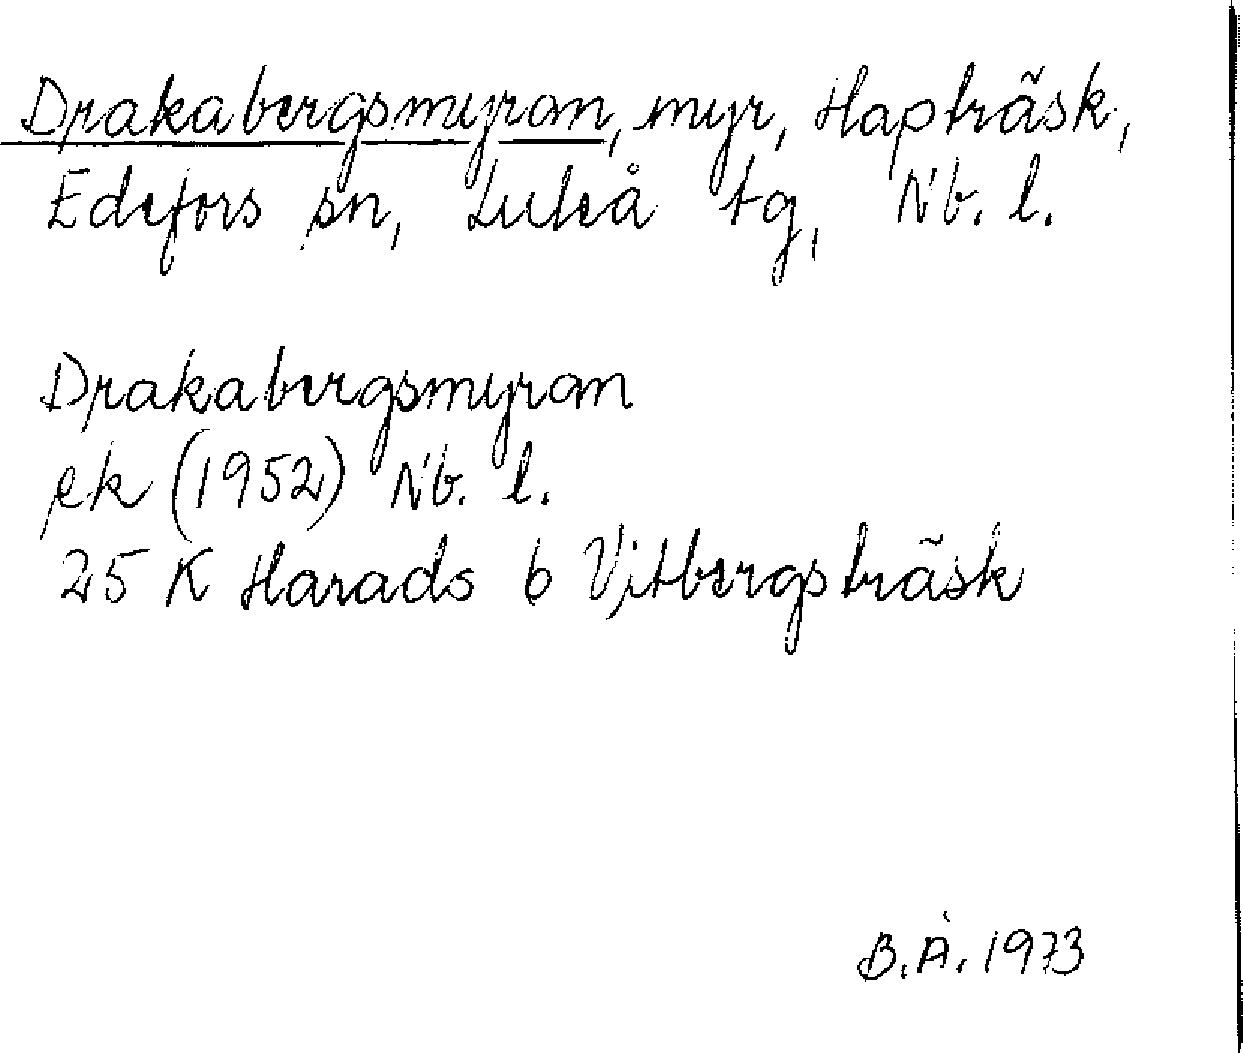 Drakabergsmyran, myr, Hapträsk,
Edefors sn, Luleå tg, Nb. l.
Drakabergsmyran
ek (1952) Nb. l.
25 K Harads 6 Vitbergsträsk
B.Å. 1973